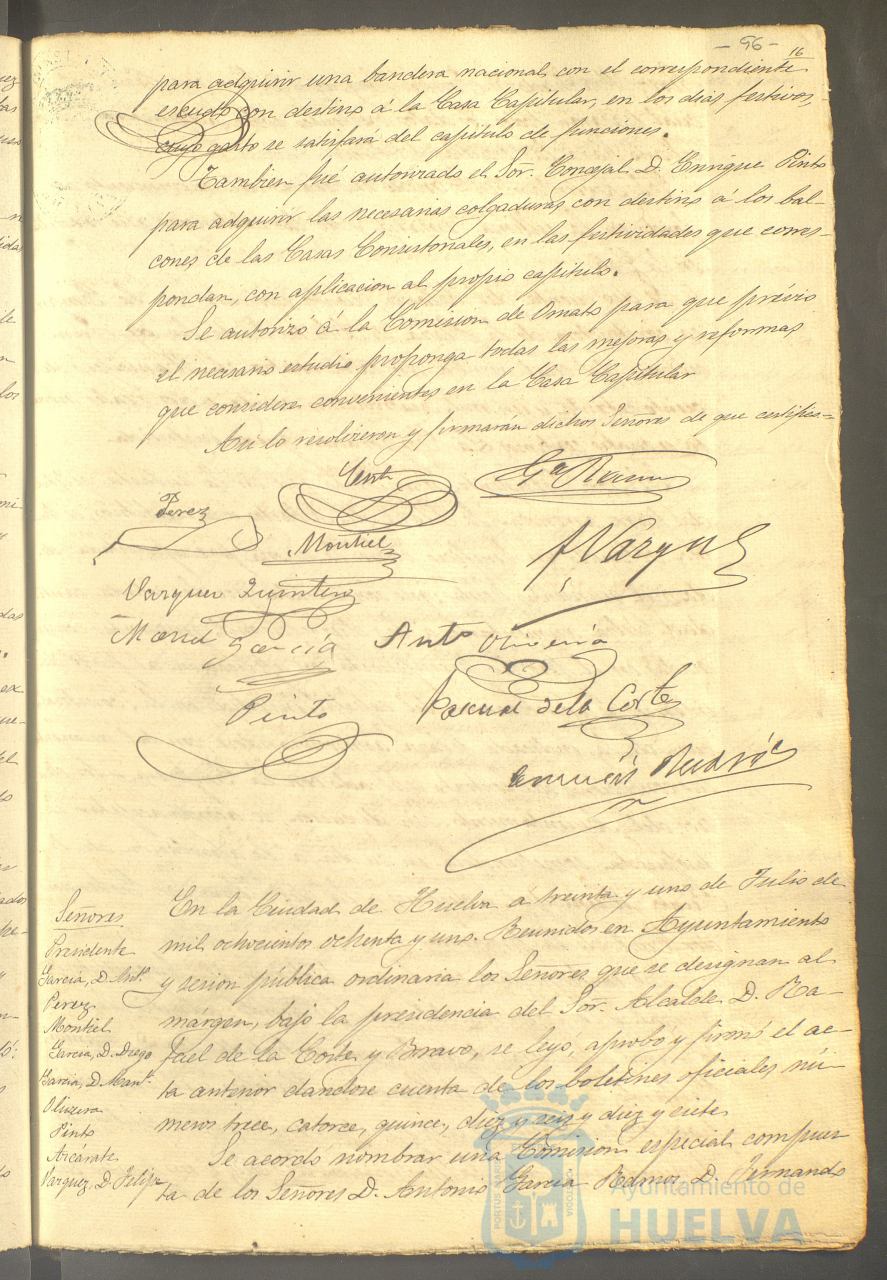 - 96 -
16
para adquirir una bandera nacional con el correspondiente
escudo con destino á la Casa Capitular, en los dias festivos,
cuyo gasto se satisfará del capitulo de funciones.
Tambien fué autorizado el Sor. Concejal D. Enrique Pinto
para adquirir las necesarias colgaduras con destino á los bal-
cones de las Casas Consistoriales, en las festividades que corres-
pondan, con aplicacion al propio capitulo.
Se autorizó á la Comision de Ornato para que prévio
el necesario estudio proponga todas las mejoras y reformas
que considere convenientes en la Casa Capitular
Asi lo resolvieron y firmarán dichos Señores de que certifico=
Corte
Ga. Ramos
Perez
Montiel
A Vazquez
Vazquez Quintero
Manuel Garcia
Anto Olivera
Pinto
Pascual de la Corte
Señores
Presidente
Garcia, D. Anto.
Perez
Montiel
Garcia, D. Diego
Garcia, D. Manl.
Olivera
Pinto
Azcárate
Vazquez, D. Felipe
En la Ciudad de Huelva á treinta y uno de Julio de
mil ochocientos ochenta y uno. Reunidos en Ayuntamiento
y sesion pública ordinaria los Señores que se designan al
márgen, bajo la presidencia del Sor. Alcalde D. Ra-
fael de la Corte y Bravo, se leyó, aprobó y firmó el ac-
ta anterior dandose cuenta de los boletines oficiales nú-
meros trece, catorce, quince, diez y seis y diez y siete
Se acordó nombrar una Comision especial compues
ta de los Señores D. Antonio Garcia Ramos, D. Fernando
Ayuntamiento de
HUELVA